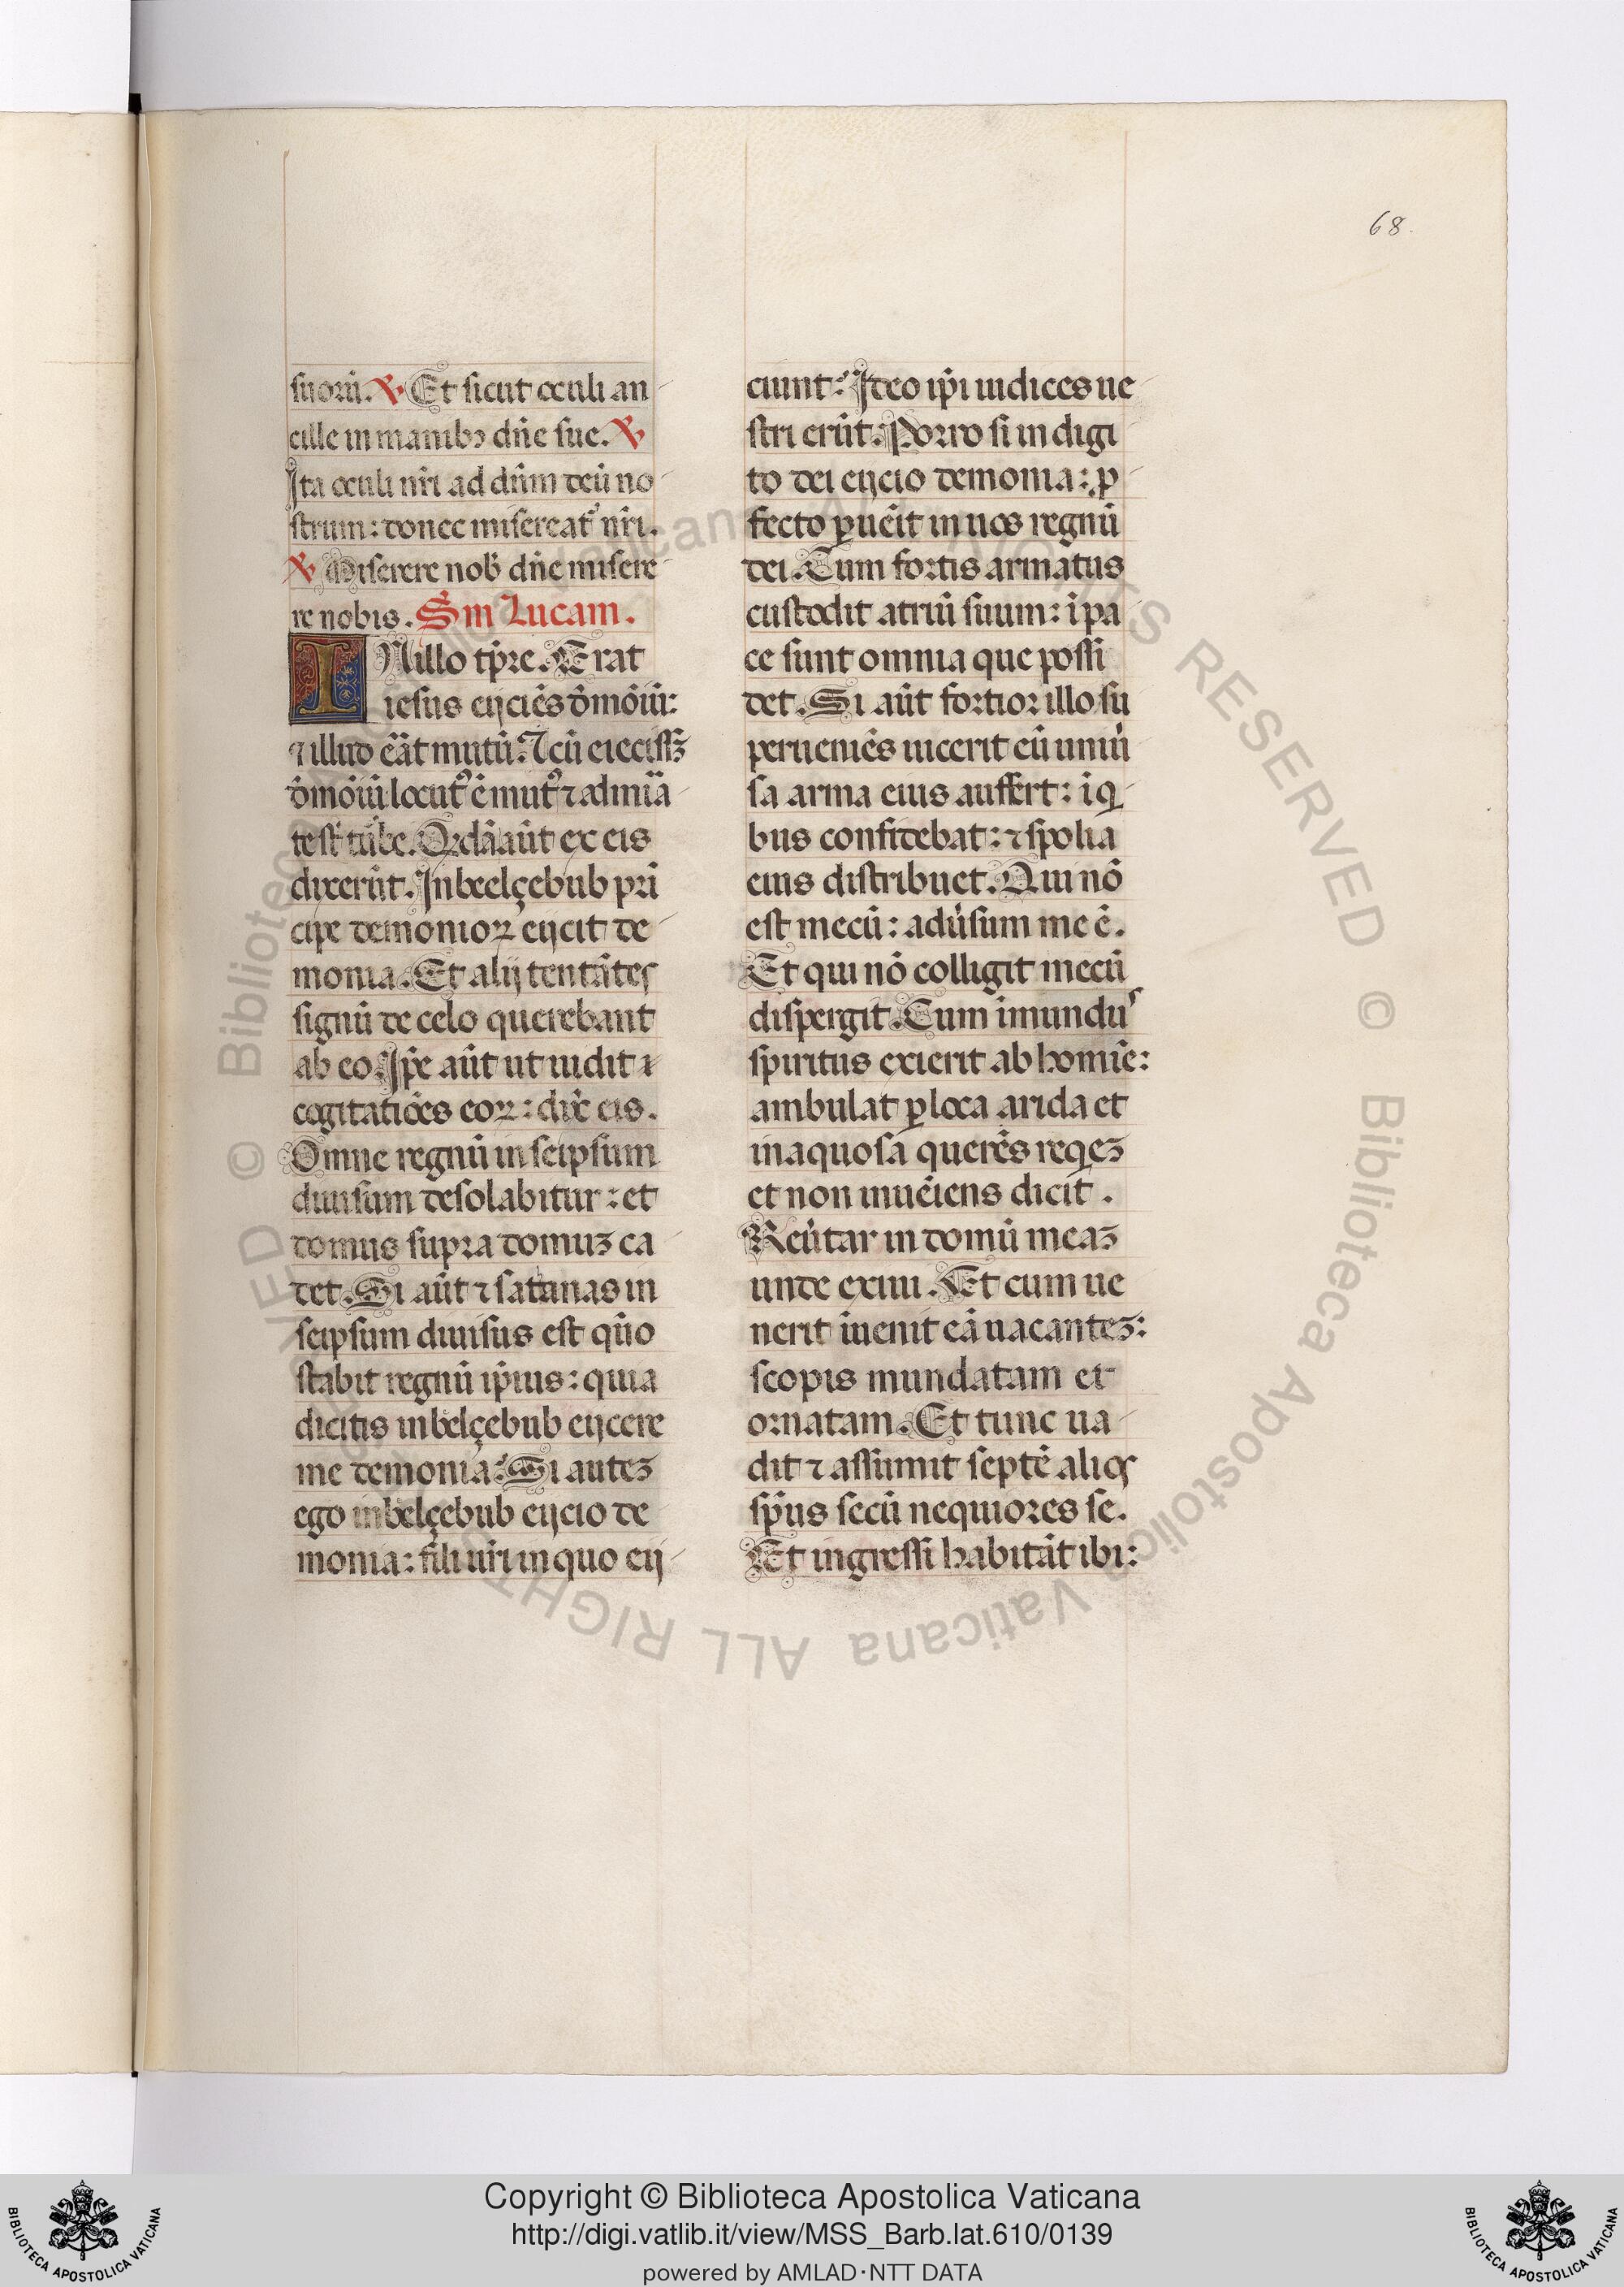 68.
suorū. ℣ Et sicut oculi an
cille in manibꝰ dn̄e sue. ℣
Ita oculi nr̄i ad dn̄m deū no
strum: donec misereat᷑ nr̄i.
℣ Miserere nob̄ dn̄e misere
re nobis. Sm Lucam.
IN illo tp̄re. Erat
iesus eijciēs dm̄oīū:
⁊ illud erāt mutū. ⁊ cū eiecissꝫ
dm̄oīū locutꝰ ē mutꝰ ⁊ admīa
te st̄ tūbe. Qꝺā aūt ex eis
dixerūt. In beelçebub pri
cipe demonioꝝ eijcit de
monia. Et alij tentātes
signū de celo querebant
ab eo. Ip̄e aūt ut uidit ⁊
cogitatiōes eoꝝ: dix̄ eis.
Omne regnū in seipsum
diuisum desolabitur: et
domus supra domuꝫ ca
det. Si aūt ⁊ satanas in
seipsum diuisus est qūo
stabit regnū ip̄ius: quia
dicitis in belçebub eijcere
me demonia. Si auteꝫ
ego in belçebub eijcio de
monia: filii ur̄i in quo eij
ciunt. Ideo ip̄i iudices ue
stri erūt. Porro si in digi
to dei eijcio demonia: ꝓ
fecto ꝑuēit in uos regnū
dei. Cum fortis armatus
custodit atriū suum: ī pa
ce sunt omnia que possi
det. Si aūt fortior illo su
perueniēs uicerit eū uniū
sa arma eius auffert: ī q̇
bus confidebat: ⁊ spolia
eius distribuet. Qui nō
est mecū: adūsum me ē.
Et qui nō colligit mecū
dispergit. Cum īmundus
spiritus exierit ab homīe:
ambulat ꝑ loca arida et
inaquosa querēs reqeꝫ
et non inuēiens dicit.
Reūtar in domū meaꝫ
unde exiui. Et cum ue
nerit īuenit eā uacanteꝫ:
scopis mundatam et
ornatam. Et tunc ua
dit ⁊ assumit septē aliōs
sp̄us secū nequiores se.
Et ingressi habitāt ibi:
© Biblioteca Apostolica Vaticana ALL RIGHTS RESERVED
Copyright © Biblioteca Apostolica Vaticana
http://digi.vatlib.it/view/MSS_Barb.lat.610/0139
powered by AMLAD·NTT DATA
BIBLIOTECA APOSTOLICA VATICANA
BIBLIOTECA APOSTOLICA VATICANA